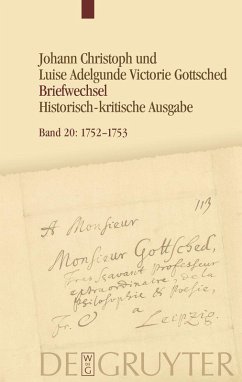 Johann Christoph und
Luise Adelgunde Victorie Gottsched
Briefwechsel
Historisch-kritische Ausgabe
Band 20: 1752–1753
113
A Monsieur
Monsieur Gottsched,
Tres scavant Professeur
extraordinaire de la
philosophie & Poesie,
Fr. C à Leipzig.
DE GRUYTER